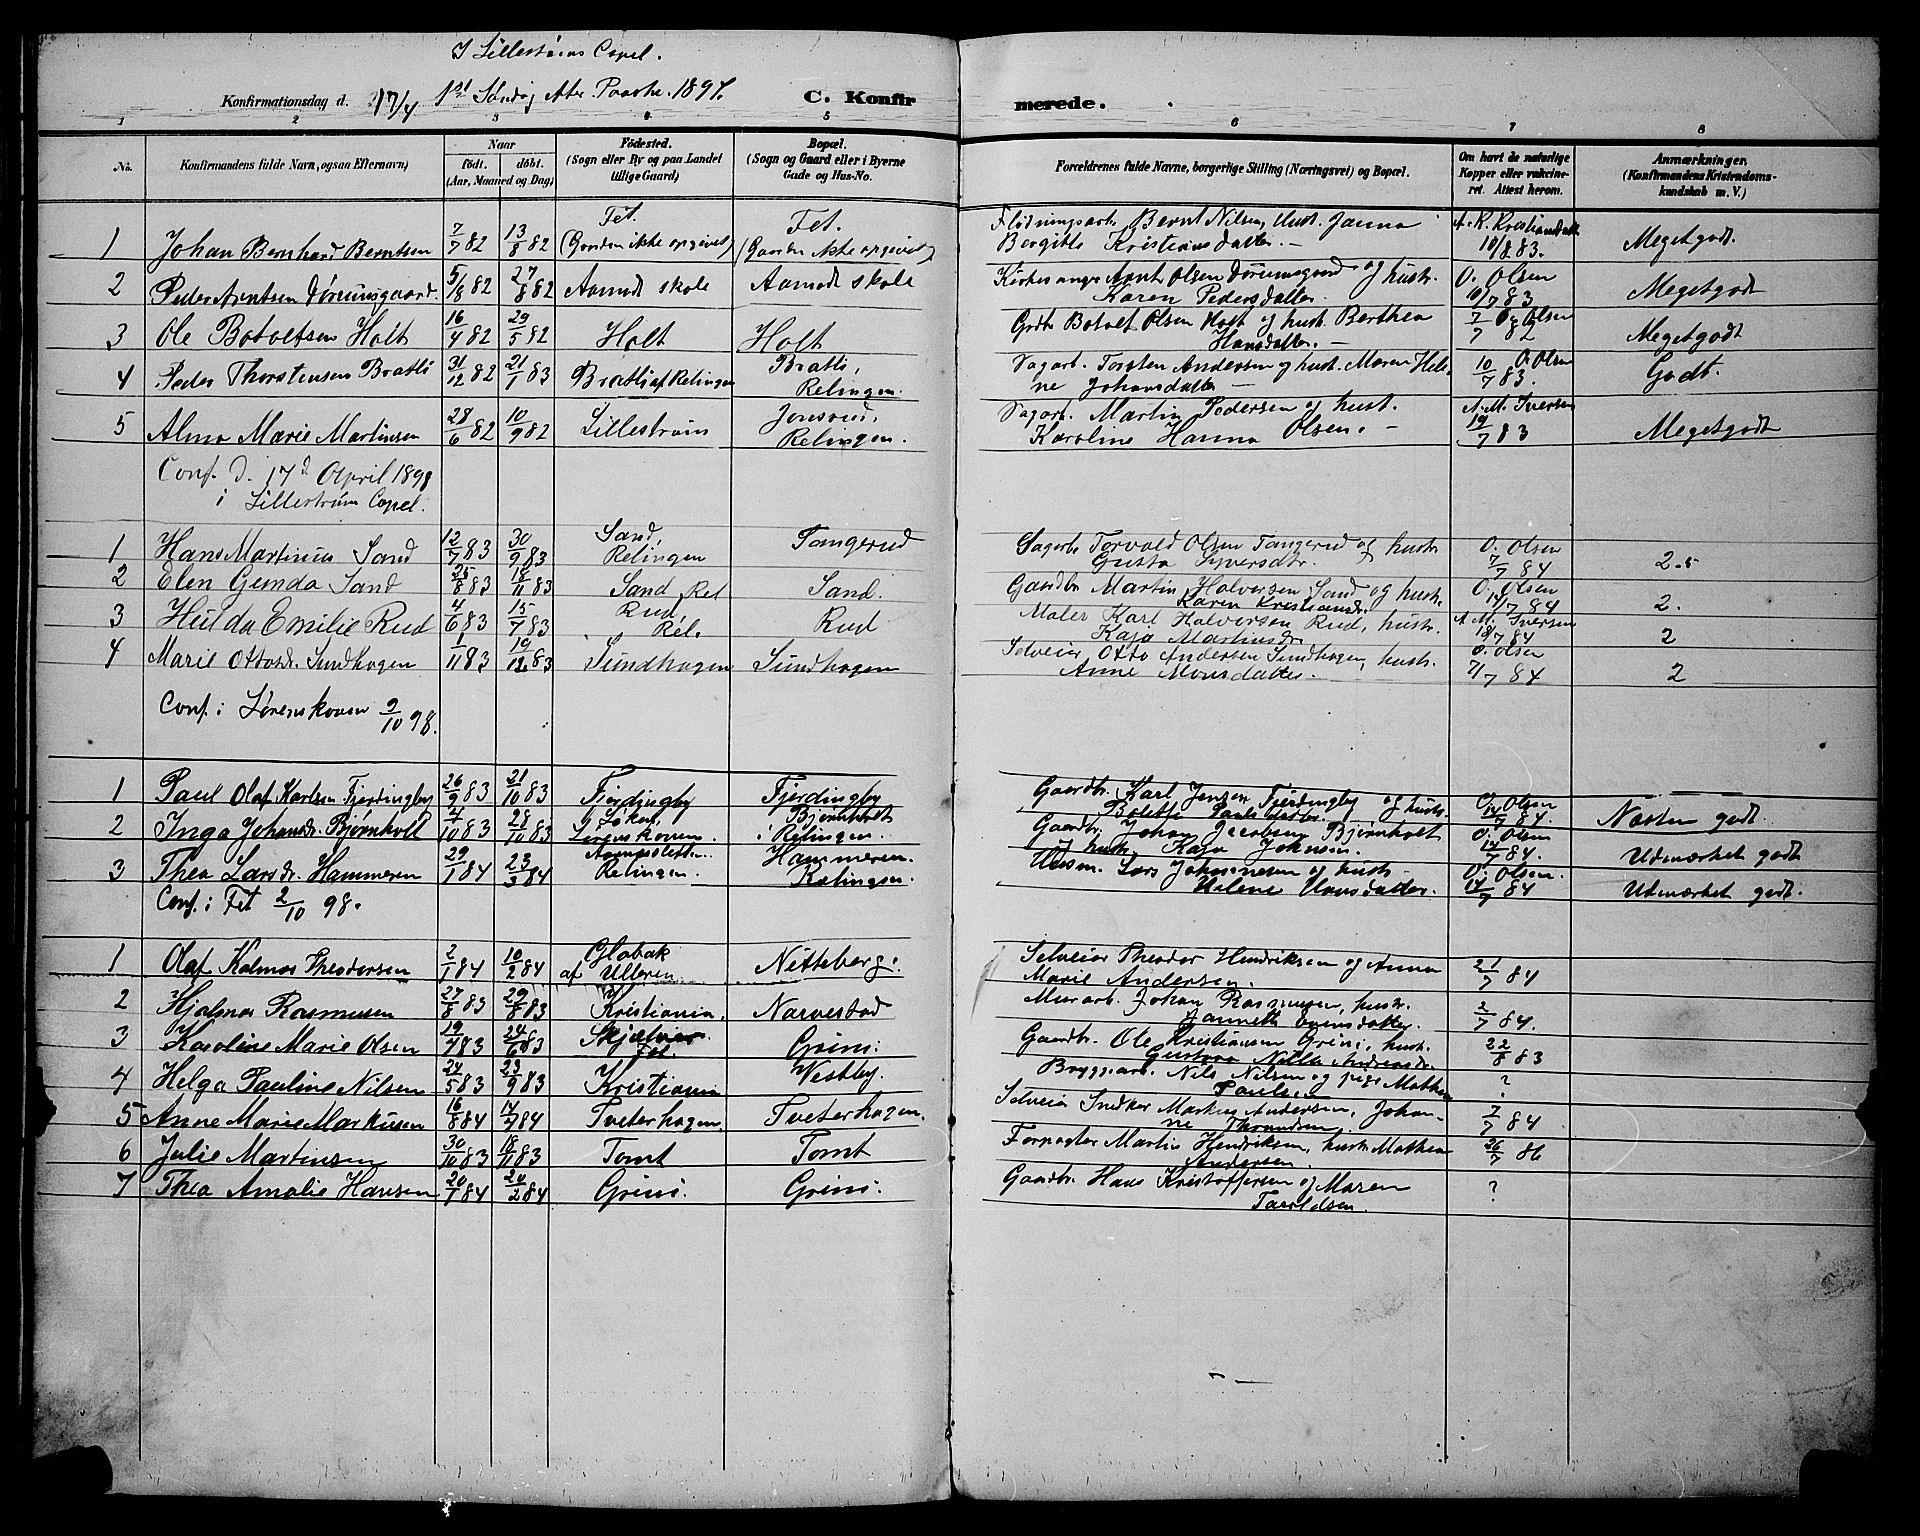 I Lillestrøms Capel.
Konfirmationsdag d. 17/4 1ste Søndag efter Paaske. 1897. C. Konfirmerede.
1 2 3 4 5 6 7 8
No. Konfirmandens fulde Navn, ogsaa Efternavn) Naar født. døbt. (Aar, Maaned og Dag) Fødested. (Sogn eller By og paa Landet tillige Gaard) Bopæl. (Sogn og Gaard eller i Byerne Gade og Hus-No. Forældrenes fulde Navne, borgerlige Stilling (Næringsvei) og Bopæl. Om havt de naturlige Kopper eller vakcineret. Attest herom. Anmærkninger. (Konfirmandens Kristendomskundskab m. V.)
1 Johan Bernhard Berntsen 7/7 82 13/8 82 Fet. (Gaarden ikke opgivet) Fet. (Gaarden ikke opgivet) Flødningsarb. Bernt Nilsen, Hust. Janna Bergitte Kristiansdatter. A. K. Kristiansdatt 10/8 83. Megetgodt.
2 Peder Arntsen Tøriumsgaard 5/8 82 27/8 82 Aamodt skole Aamodt skole Kirkesanger Arnt Olsen Døriumsgaard og hustr. Karen Pedersdatter. O. Olsen 10/7 83 Megetgodt
3 Ole Botoltsen Holt 16/4 82 29/5 82 Holt Holt Grdbr. Botolt Olsen Holt og hust. Berthea Hansdatter. O. Olsen 7/7 82 Megetgodt
4 Peder Thorstensen Bratli 31/12 82 21/1 83 Bratli af Relingen Bratli, Relingen. Sagarb. Torsten Andersen og hust. Maren Helene Johansdatter O. Olsen 10/7 83. Godt.
5 Alma Marie Martinsen 28/6 82 10/9 82 Lillestrøm Jonsrud, Relingen. Sagarb. Martin Pedersen og hust. Karoline Hanna Olsen. A. M. Iversen 19/7 83 Megetgodt
Conf. d. 17d April 1898 i Lillestrøm Capel.
1 Hans Martinius Sand 12/7 83 30/9 83 Sand, Relingen Tangerud Sagarb. Torvald Olsen Tangerud og hustr. Gusta Iversdtr. O. Olsen 7/7 84 2.5
2 Elen Gemda Sand 25/8 83 18/11 83 Sand Rel Sand. Gaardbr. Martin Halvorsen Sand og hustr. Karen Kristiansdr. O. Olsen 14/7 84 2.
3 Hulda Emilie Rud 4/6 83 15/7 83 Rud, Rel. Rud Maler Karl Halvorsen Rud, hustr. Kaja Martinsdr. A. M. Iversen 18/7 84 2
4 Marie Ottosdr. Sundhagen 1/11 83 19/12 83 Sundhagen Sundhagen Selveier Otto Andersen Sundhagen, hustr. Anne Monsdatter. O. Olsen 7/7 84 2
Conf. i Lørenskoven 9/10 98.
1 Paul Olaf Karlsen Fjerdingby 26/9 83 21/10 83 Fjerdingby Fjerdingby Gaardbr. Karl Jensen Fjerdingby og hustr. Bolette Paulsdatter. O. Olsen 14/7 84. Næsten godt.
2 Inga Johansdr. Bjørnholt 4/10 83 28/10 83 Løken, Lørenskoven. Bjørnholt i Relingen. Gaardbr. Johan Jacobsen Bjørnholt og hustr. Kaja Johnsen. O. Olsen 14/7 84. Udmærket godt
3 Thea Larsdr. Hammeren 29/1 84 23/3 84 Relingen. Hammeren. Relingen. Husm. Lars Johannesen og hustr. Helene Hansdatter. O. Olsen. 14/7 84 Udmærket godt.
Conf. i Fet 2/10 98.
1 Olaf Kalmar Theodorsen 2/1 84 10/2 84 Globak af Ulleren. Nitteberg. Selveier Theodor Hendriksen og Anna Marie Andersen. 21/7 84
2 Hjalmar Rasmusen 27/8 83 29/8 83 Kristiania. Narvestad Murarb. Johan Rasmusen, hustr. Jannette Evensdatter. 2/7 84.
3 Karoline Marie Olsen 19/4 83 24/6 83 Fet. Grini. Gaardbr. Ole Kristiansen Grini, hustr. Gustava Nilla Andreasdr. 22/8 83
4 Helga Pauline Nilsen 24/5 83 23/9 83 Kristiania Vestby. Bryggearb. Nils Nilsen og pige Mathea Pauls. ?
5 Anne Marie Markusen 16/8 84 14/7 84 Tveterhagen. Tveterhagen. Selveier Snedker Markus Andersen, Johanne 7/7 84
6 Julie Martinsen 30/10 83 18/11 83 Tomt Tomt Forpagter Martin Hendriksen, hustr. Mathea Andersen. 26/7 86
7 Thea Amalie Hansen 20/1 84 20/2 84 Grini. Grini. Gaardbr. Hans Kristoffersen og Maren Taroldsen. ?